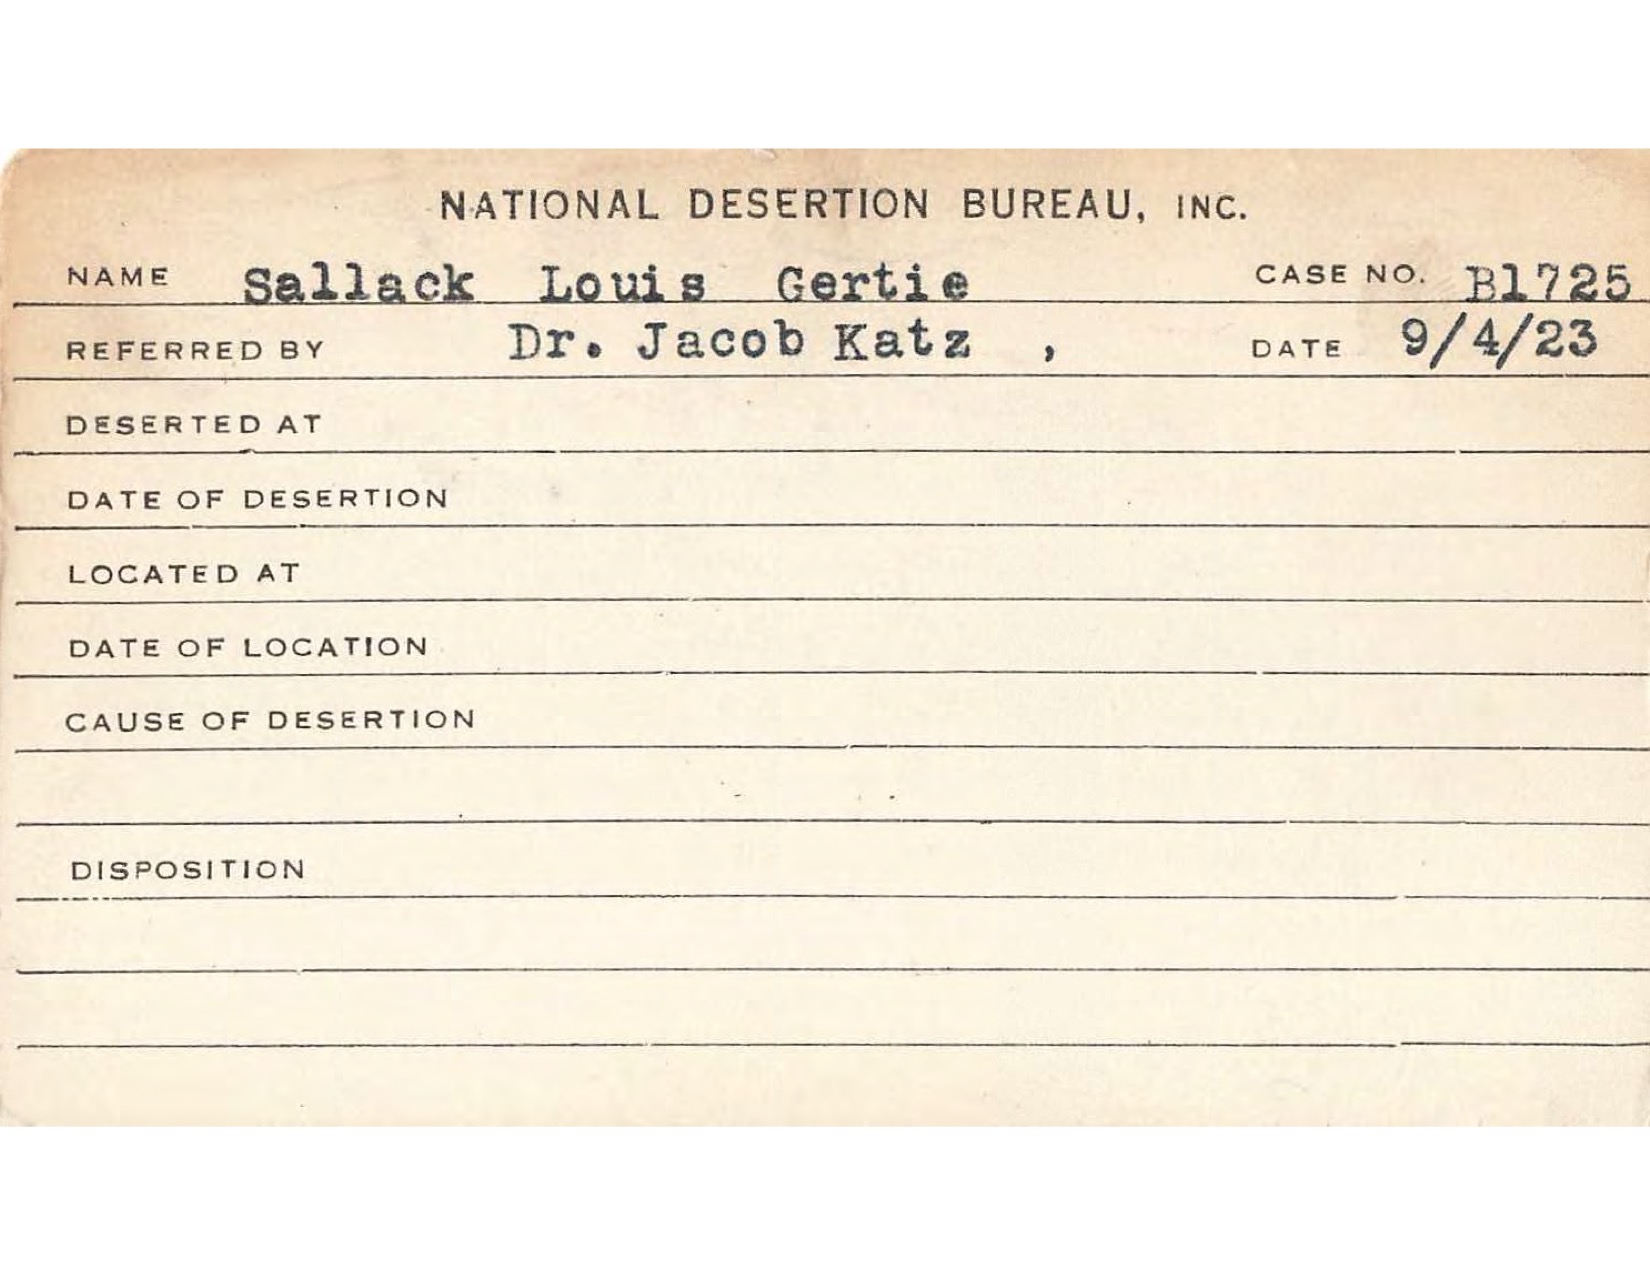 NATIONAL DESERTION BUREAU, INC.
NAME Sallack Louis Gertie CASE NO. B1725
REFERRED BY Dr. Jacob Katz , DATE 9/4/23
DESERTED AT
DATE OF DESERTION
LOCATED AT
DATE OF LOCATION
CAUSE OF DESERTION
DISPOSITION